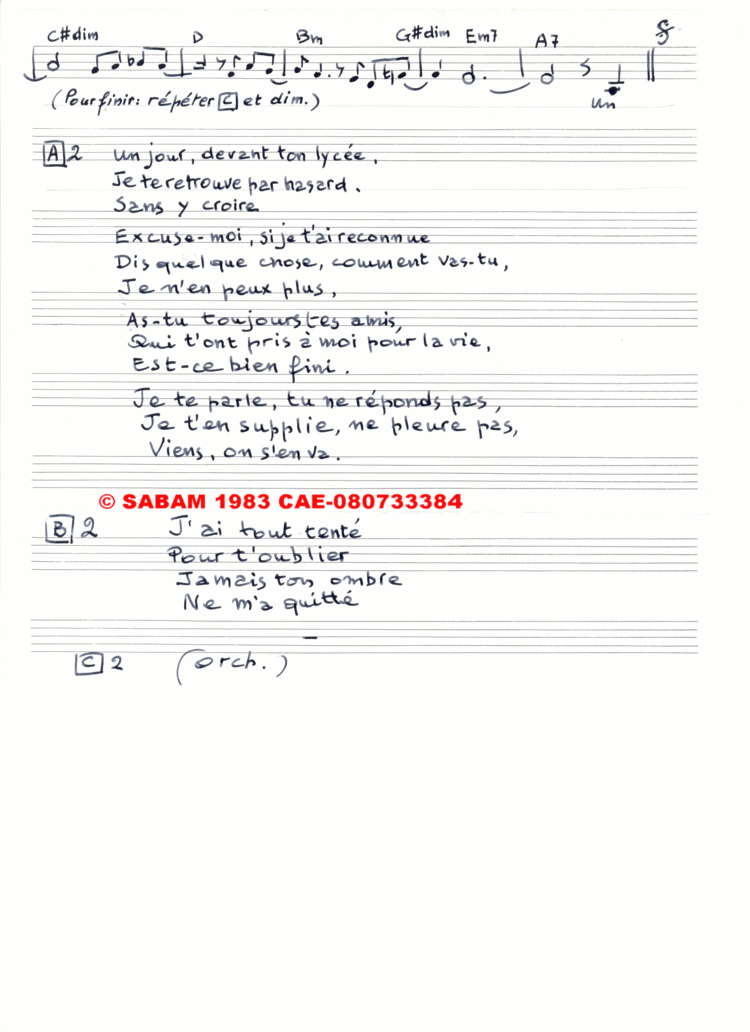 C#dim D Bm G#dim Em7 A7
un
(Pour finir: répéter C et dim.)
A 2 un jour, devant ton lycée,
Je te retrouve par hasard.
Sans y croire
Excuse-moi, si je t'ai reconnue
Dis quelque chose, comment vas-tu,
Je n'en peux plus,
As-tu toujours tes amis,
Qui t'ont pris à moi pour la vie,
Est-ce bien fini.
Je te parle, tu ne réponds pas,
Je t'en supplie, ne pleure pas,
Viens, on s'en va.
© SABAM 1983 CAE-080733384
B 2 J'ai tout tenté
Pour t'oublier
Jamais ton ombre
Ne m'a quitté
C 2 (orch.)